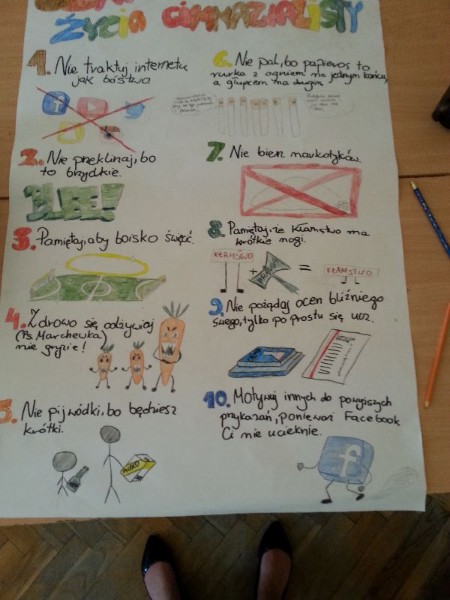 ŻYCIA GIMNAZJALISTY
1. Nie traktuj internetu
jak bóstwa
2. Nie przeklinaj, bo
to brzydkie.
BLEE!
3. Pamiętaj, aby boisko święcić.
4. Zdrowo się odżywiaj
(Ps. Marchewka)
nie gryzie!
5. Nie pij wódki, bo będziesz
krótki.
6. Nie pal, bo papieros to
rurka z ogniem na jednym końcu,
a głupcem na drugim.
7. Nie bierz narkotyków.
8. Pamiętaj, że kłamstwo ma
krótkie nogi.
KŁAMSTWO
+
=
KŁAMSTWO
9. Nie pożądaj ocen bliźniego
swego, tylko po prostu się ucz.
10. Motywuj innych do powyższych
przykazań, ponieważ Facebook
Ci nie ucieknie.
f